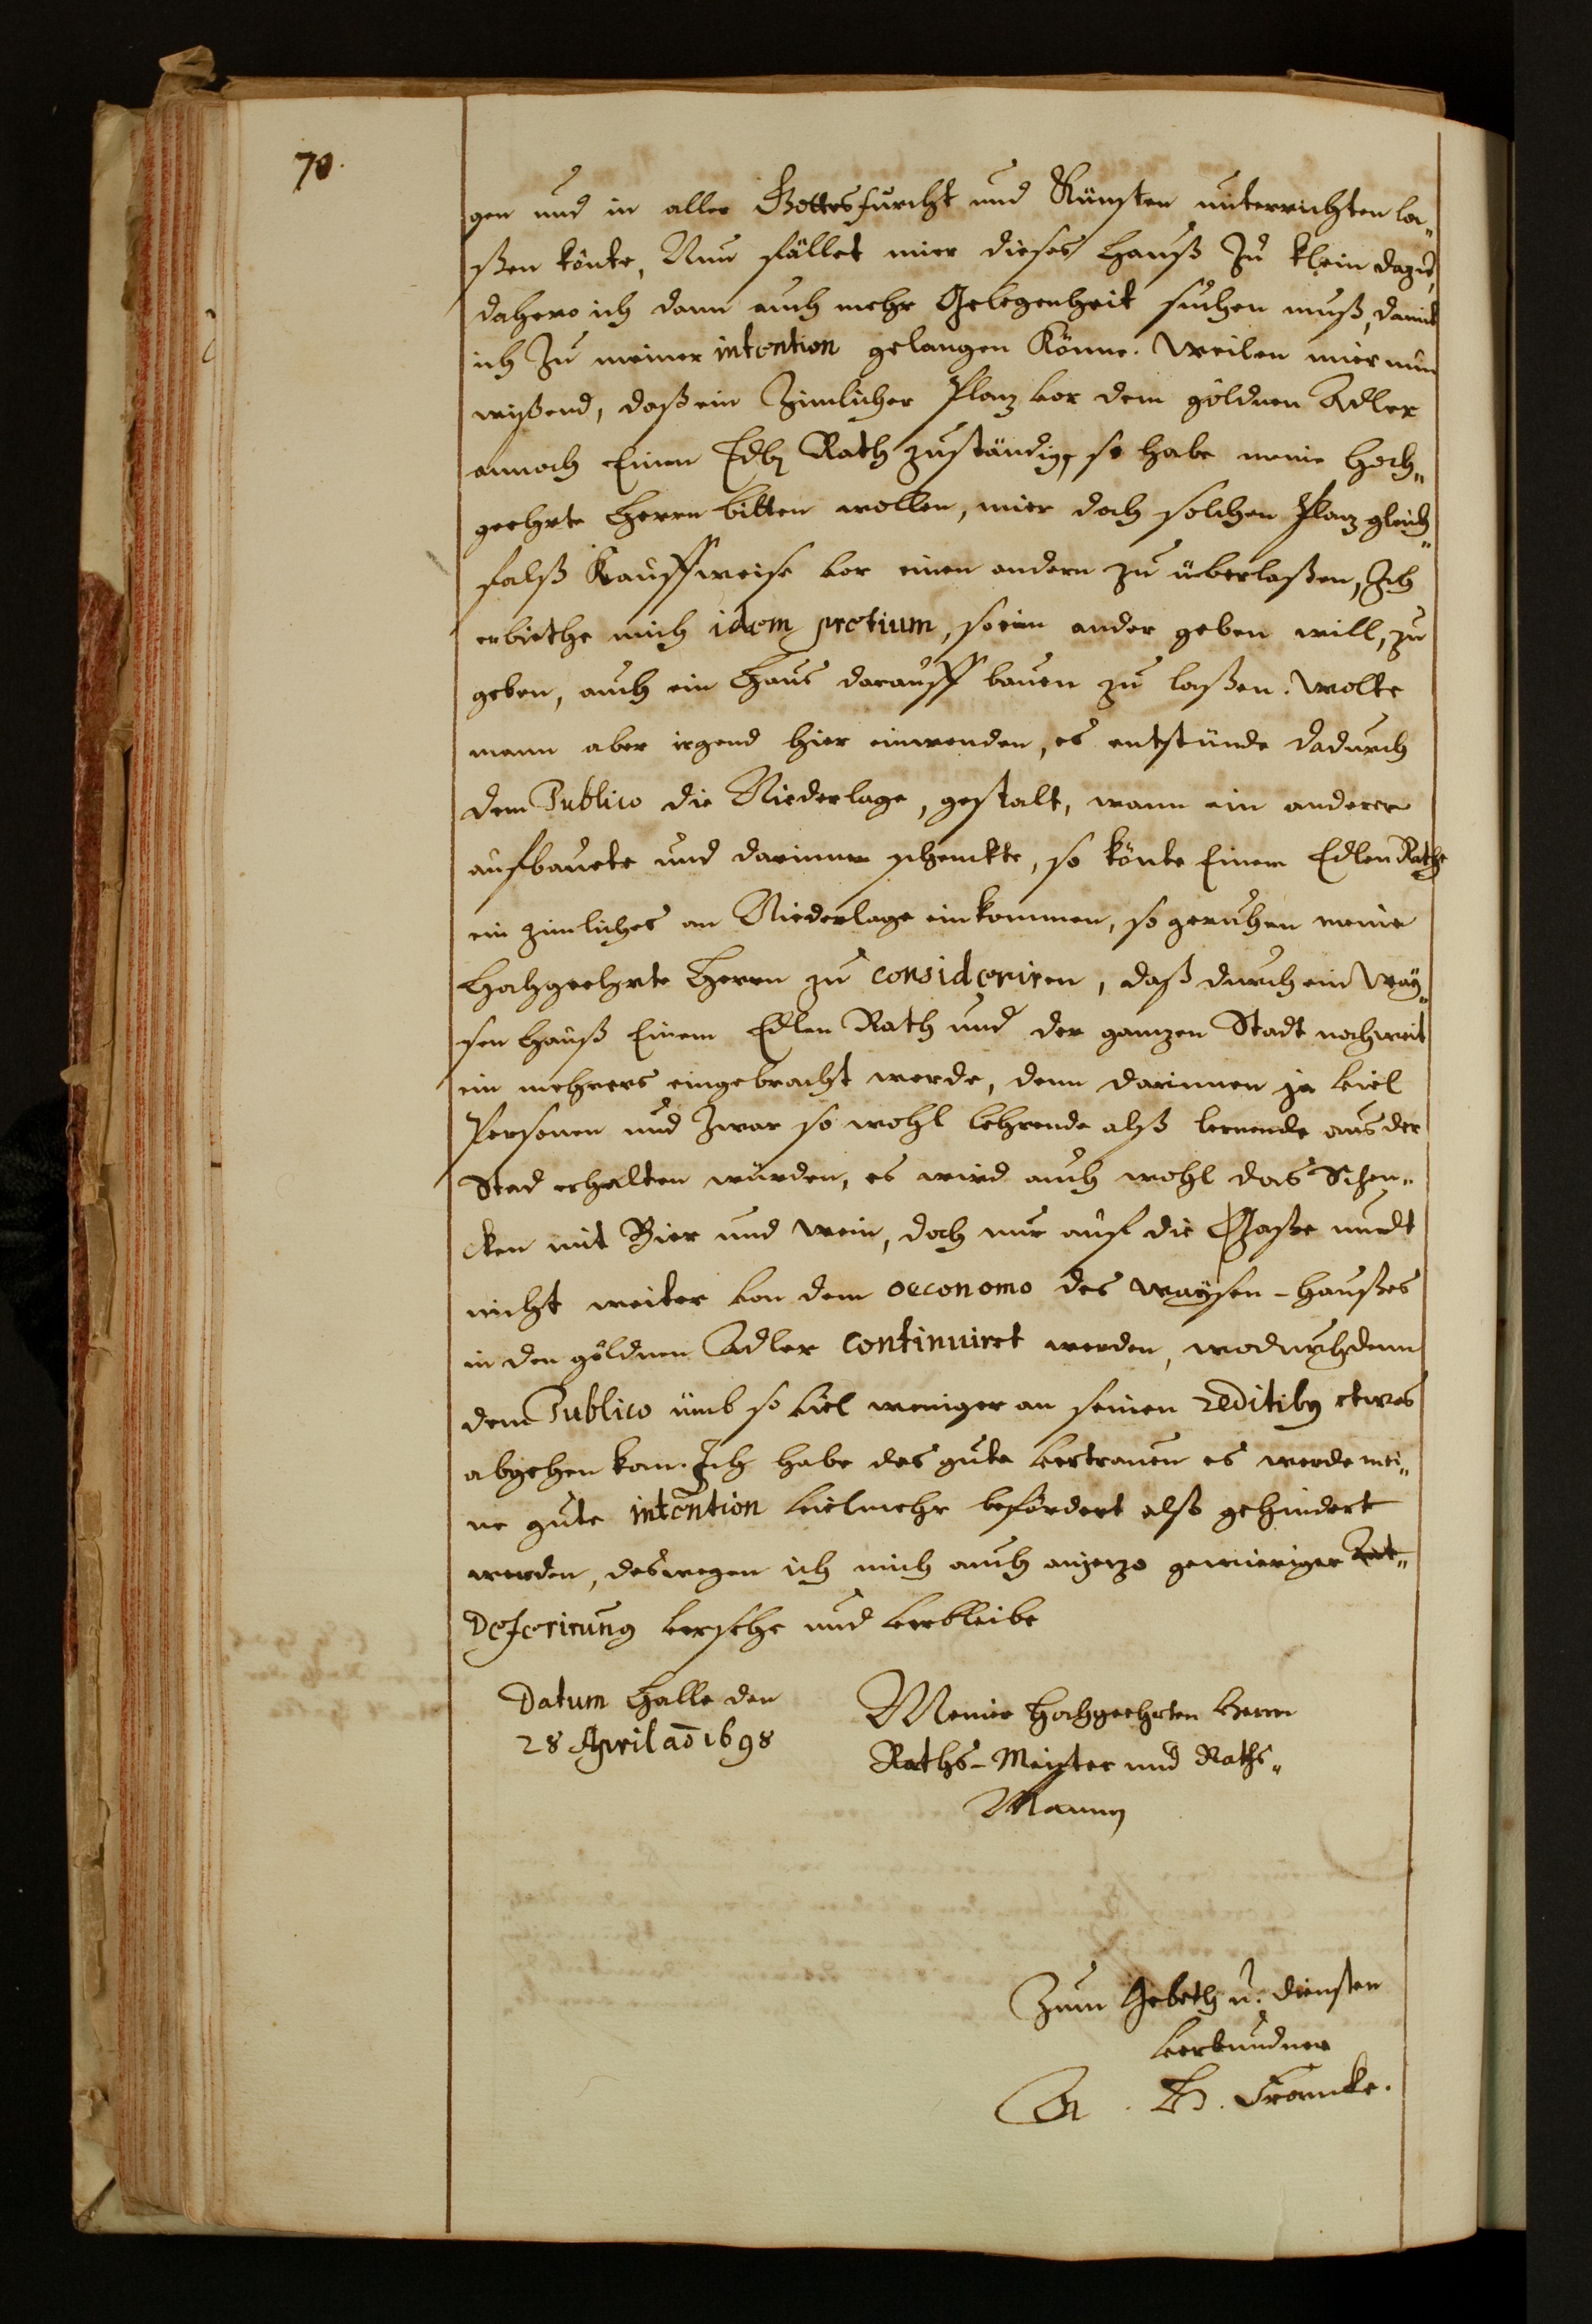 70.
gen und in aller Gottesfurcht und Künsten unterrichten la„
ßen könte, Nun fället mier dieses Hauß zu klein dazu,
dahero ich dann auch mehr Gelegenheit suchen muß, damit
ich zu meiner intention gelangen könne. Weilen mier nun
wißend, daß ein zimlicher Plaz vor dem göldnen Adler
annoch Einem Edl. Rath zuständig, so habe meine Hoch„
geehrte Herrn bitten wollen, mier doch solchen Plaz gleich„
falß Kauffweise vor einen andern zu überlaßen, Ich
erbiethe mich idem pretium, so ein ander geben will, zu
geben, auch ein Haus darauff bauen zu laßen. Wolte
mann aber irgend hier einwenden, es entstünde dadurch
dem Publico die Niederlage, gestalt, wann ein anderer
aufbauete und darinnen schenckte, so könte Einem Edlen Rathe
ein zimliches an Niederlage einkommen, so geruhen meine
Hochgeehrte Herrn zu consideriren, daß durch ein Way„
sen Hauß Einem Edlen Rath und der gantzen Stadt noch weit
ein mehrers eingebracht werde, denn darinnen ja viel
Personen und zwar so wohl lehrende alß lernende aus der
Stad erhalten würden, es wird auch wohl das Schen„
cken mit Bier und Wein, doch nur auf die Gaße undt
nicht weiter von dem oeconomo des Waysen-Haußes
in den göldnen Adler continuiret werden, wodurch denn
dem Publico ümb so viel weniger an seinen reditibus etwas
abgehen kan. Ich habe das gute Vertrauen es werde mei„
ne gute intention vielmehr befördert alß gehindert
werden, deswegen ich mich auch anjezo gewieriger
Deferirung versehe und verbleibe
Datum Halle den
28 April aō 1698
Meiner Hochgeehrten Herrn
Raths-Meister und Raths„
Manne
Zum Gebeth u. Diensten
Verbundner
A. H. Francke.